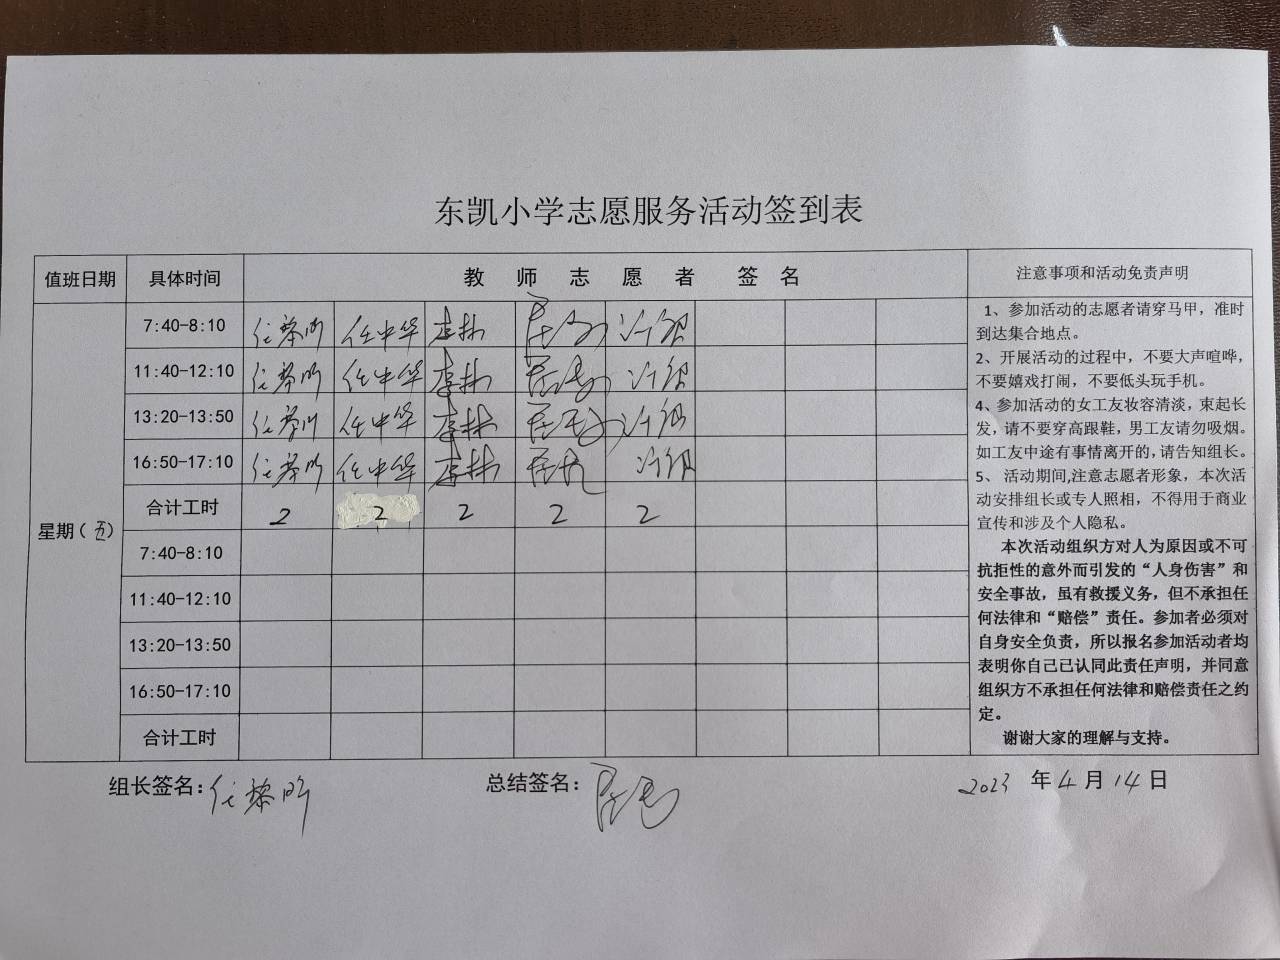 东凯小学志愿服务活动签到表
值班日期 具体时间 教师志愿者签名 注意事项和活动免责声明
7:40-8:10 任黎明 任中华 李林 许银
11:40-12:10 任黎明 任中华 李林 许银
13:20-13:50 任黎明 任中华 李林 许银
16:50-17:10 任黎明 任中华 李林 许银
合计工时 2 2 2 2 2
星期(五)
7:40-8:10
11:40-12:10
13:20-13:50
16:50-17:10
合计工时
1、参加活动的志愿者请穿马甲，准时
到达集合地点。
2、开展活动的过程中，不要大声喧哗，
不要嬉戏打闹，不要低头玩手机。
4、参加活动的女工友妆容清淡，束起长
发，请不要穿高跟鞋，男工友请勿吸烟。
如工友中途有事情离开的，请告知组长。
5、 活动期间,注意志愿者形象，本次活
动安排组长或专人照相，不得用于商业
宣传和涉及个人隐私。
本次活动组织方对人为原因或不可
抗拒性的意外而引发的“人身伤害”和
安全事故，虽有救援义务，但不承担任
何法律和“赔偿”责任。参加者必须对
自身安全负责，所以报名参加活动者均
表明你自己已认同此责任声明，并同意
组织方不承担任何法律和赔偿责任之约
定。
谢谢大家的理解与支持。
组长签名：任黎明 总结签名： 2023 年 4 月 14 日